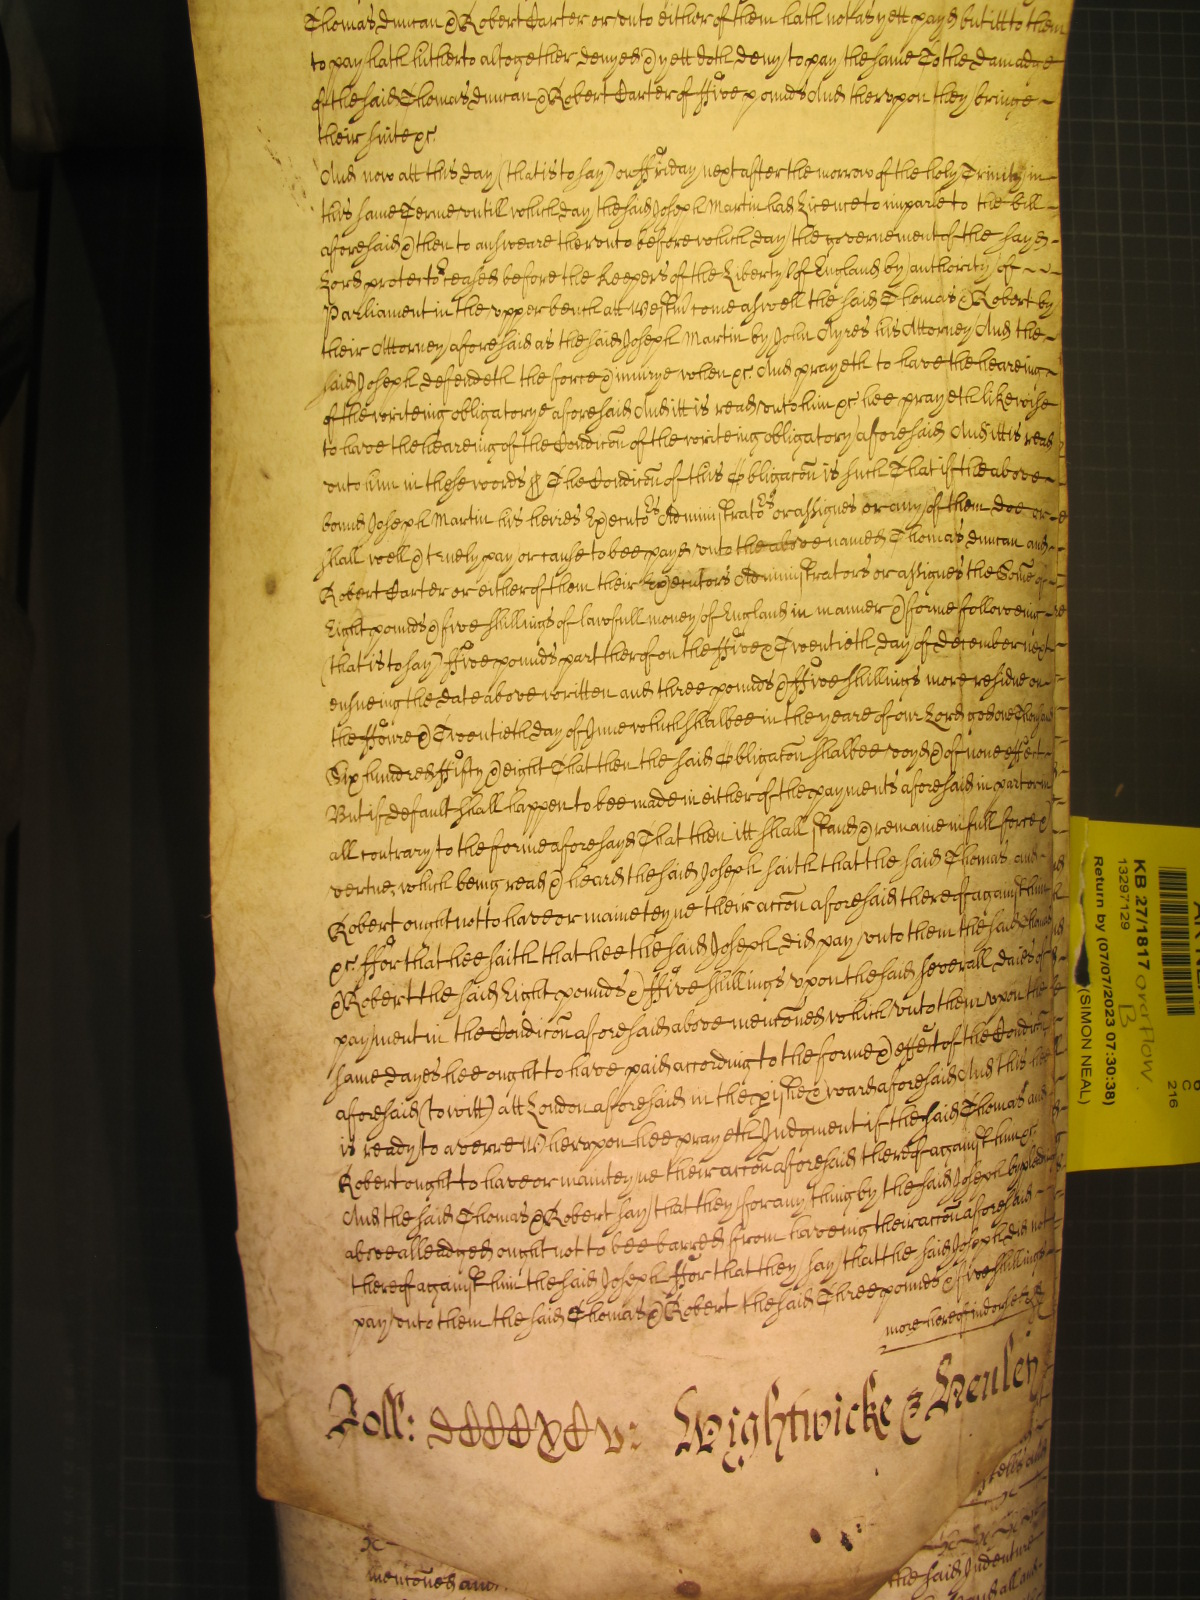 Thomas Duncan & Robert Carter or unto either of them hath not as yett payd but itt to them
to pay hath hitherto altogether denyed & yett doth deny to pay the same To the damadge
of the said Thomas Duncan & Robert Carter of ffive pounds And therupon they bringe
their suite &c
And now att this day (that is to say) on ffriday next after the morrow of the holy Trinity in
this same Terme untill which day the said Joseph Martin had Licence to imparle to the bill
aforesaid & then to answeare therunto before which day the governement of the sayd
Lord protector ceased before the keepers of the Liberty of England by authority of
Parliament in the upper bench att Westm come aswell the said Thomas & Robert by
their Attorney aforesaid as the said Joseph Martin by John Ayres his Attorney And the
said Joseph defendeth the force & iniurye when &c. And prayeth to have the heareing
of the writeing obligatorye aforesaid And itt is read unto him &c hee prayeth likewise
to have the heareing of the Condicon of the writeing obligatory aforesaid And itt is read
unto him in these words The Condicon of this Obligacon is such That if the above
bound Joseph Martin his heires Executors Administrators or assignes or any of them doe or
shall well & truely pay or cause to bee payd unto the above named Thomas Duncan and
Robert Carter or either of them their Executors Administrators or assignes the Some of
Eight pounds & five shillings of lawfull money of England in manner & forme followeing
(that is to say) ffive pounds part therof on the ffive & Twentieth day of December next
ensueing the date above written and three pounds & ffive shillings more residue on
the ffoure & Twentieth day of June which shalbee in the yeare of our Lord god one Thousand
Six hundred ffifty & eight That then the said Obligacon shalbee voyd & of none effect
But if default shall happen to bee made in either of the payments aforesaid in part or in
all contrary to the forme aforesayd That then itt shall stand & remaine in full force &
vertue, which being read & heard the said Joseph saith that the said Thomas and
Robert ought not to have or mainteyne their accon aforesaid thereof against him
&c ffor that hee saith that hee the said Joseph did pay unto them the said Thomas
& Robert the said Eight pounds & ffive shillings upon the said severall daies of
payment in the Condicon aforesaid above menconed which unto them upon the
same dayes hee ought to have paid according to the forme & effect of the Condicon
aforesaid (to witt) att London aforesaid in the pishe & ward aforesaid And this hee
is ready to averre Wherupon hee prayeth Judgment if the said Thomas and
Robert ought to have or mainteyne their accon aforesaid thereof against him &c
And the said Thomas & Robert say that they for any thing by the said Joseph by pleading
above alleadged ought not to bee barred from haveing their accon aforesaid
thereof against him the said Joseph ffor that they say that the said Joseph did not
pay unto them the said Thomas & Robert the said Three pounds & five shillings
more hereof indorsed
Roll: Wightwicke & Henley
menconed and
the said Indenture
KB 27/1817 overflow
B
13297129
Return by (07/07/2023 07:30:38)
(SIMON NEAL)
C
216